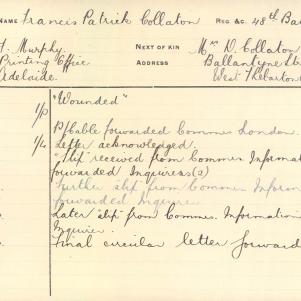 NAME Francis Patrick Collaton REG &c. 48th Ba
J. Murphy. NEXT OF KIN Mrs D. Collaton
Printing Office ADDRESS Ballantyne Str
Adelaide. West Thebarton
"Wounded"
P/Cable forwarded Commrs London.
Letter acknowledged.
"slip" received from Commrs Informat
forwarded Inquirers (2)
Further slip from Commrs Inform
forwarded Inquirer
Later "slip" from Commrs. Information
Inquirer.
Final circular letter forward